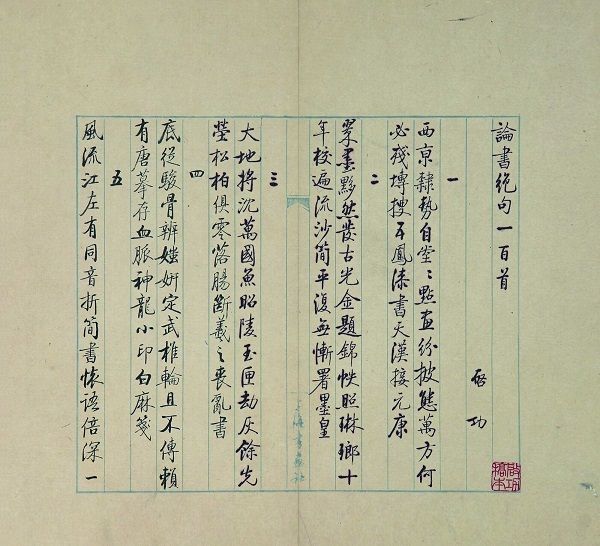 論書絶句一百首
啓功
一
西京隸勢自堂〻點畫紛披態萬方何
必殘塼搜五鳳漆書天漢接元康
二
翠墨黟然發古光金題錦帙照琳瑯十
年校遍流沙簡平復無慚署墨皇
上海書畫社
三
大地將沈萬國魚昭陵玉匣劫灰餘先
塋松柏俱零落腸斷羲之喪亂書
四
底從駿骨辨媸妍定武椎輪且不傳賴
有唐摹存血脈神龍小印白麻箋
五
風流江左有同音折簡書懷語倍深一